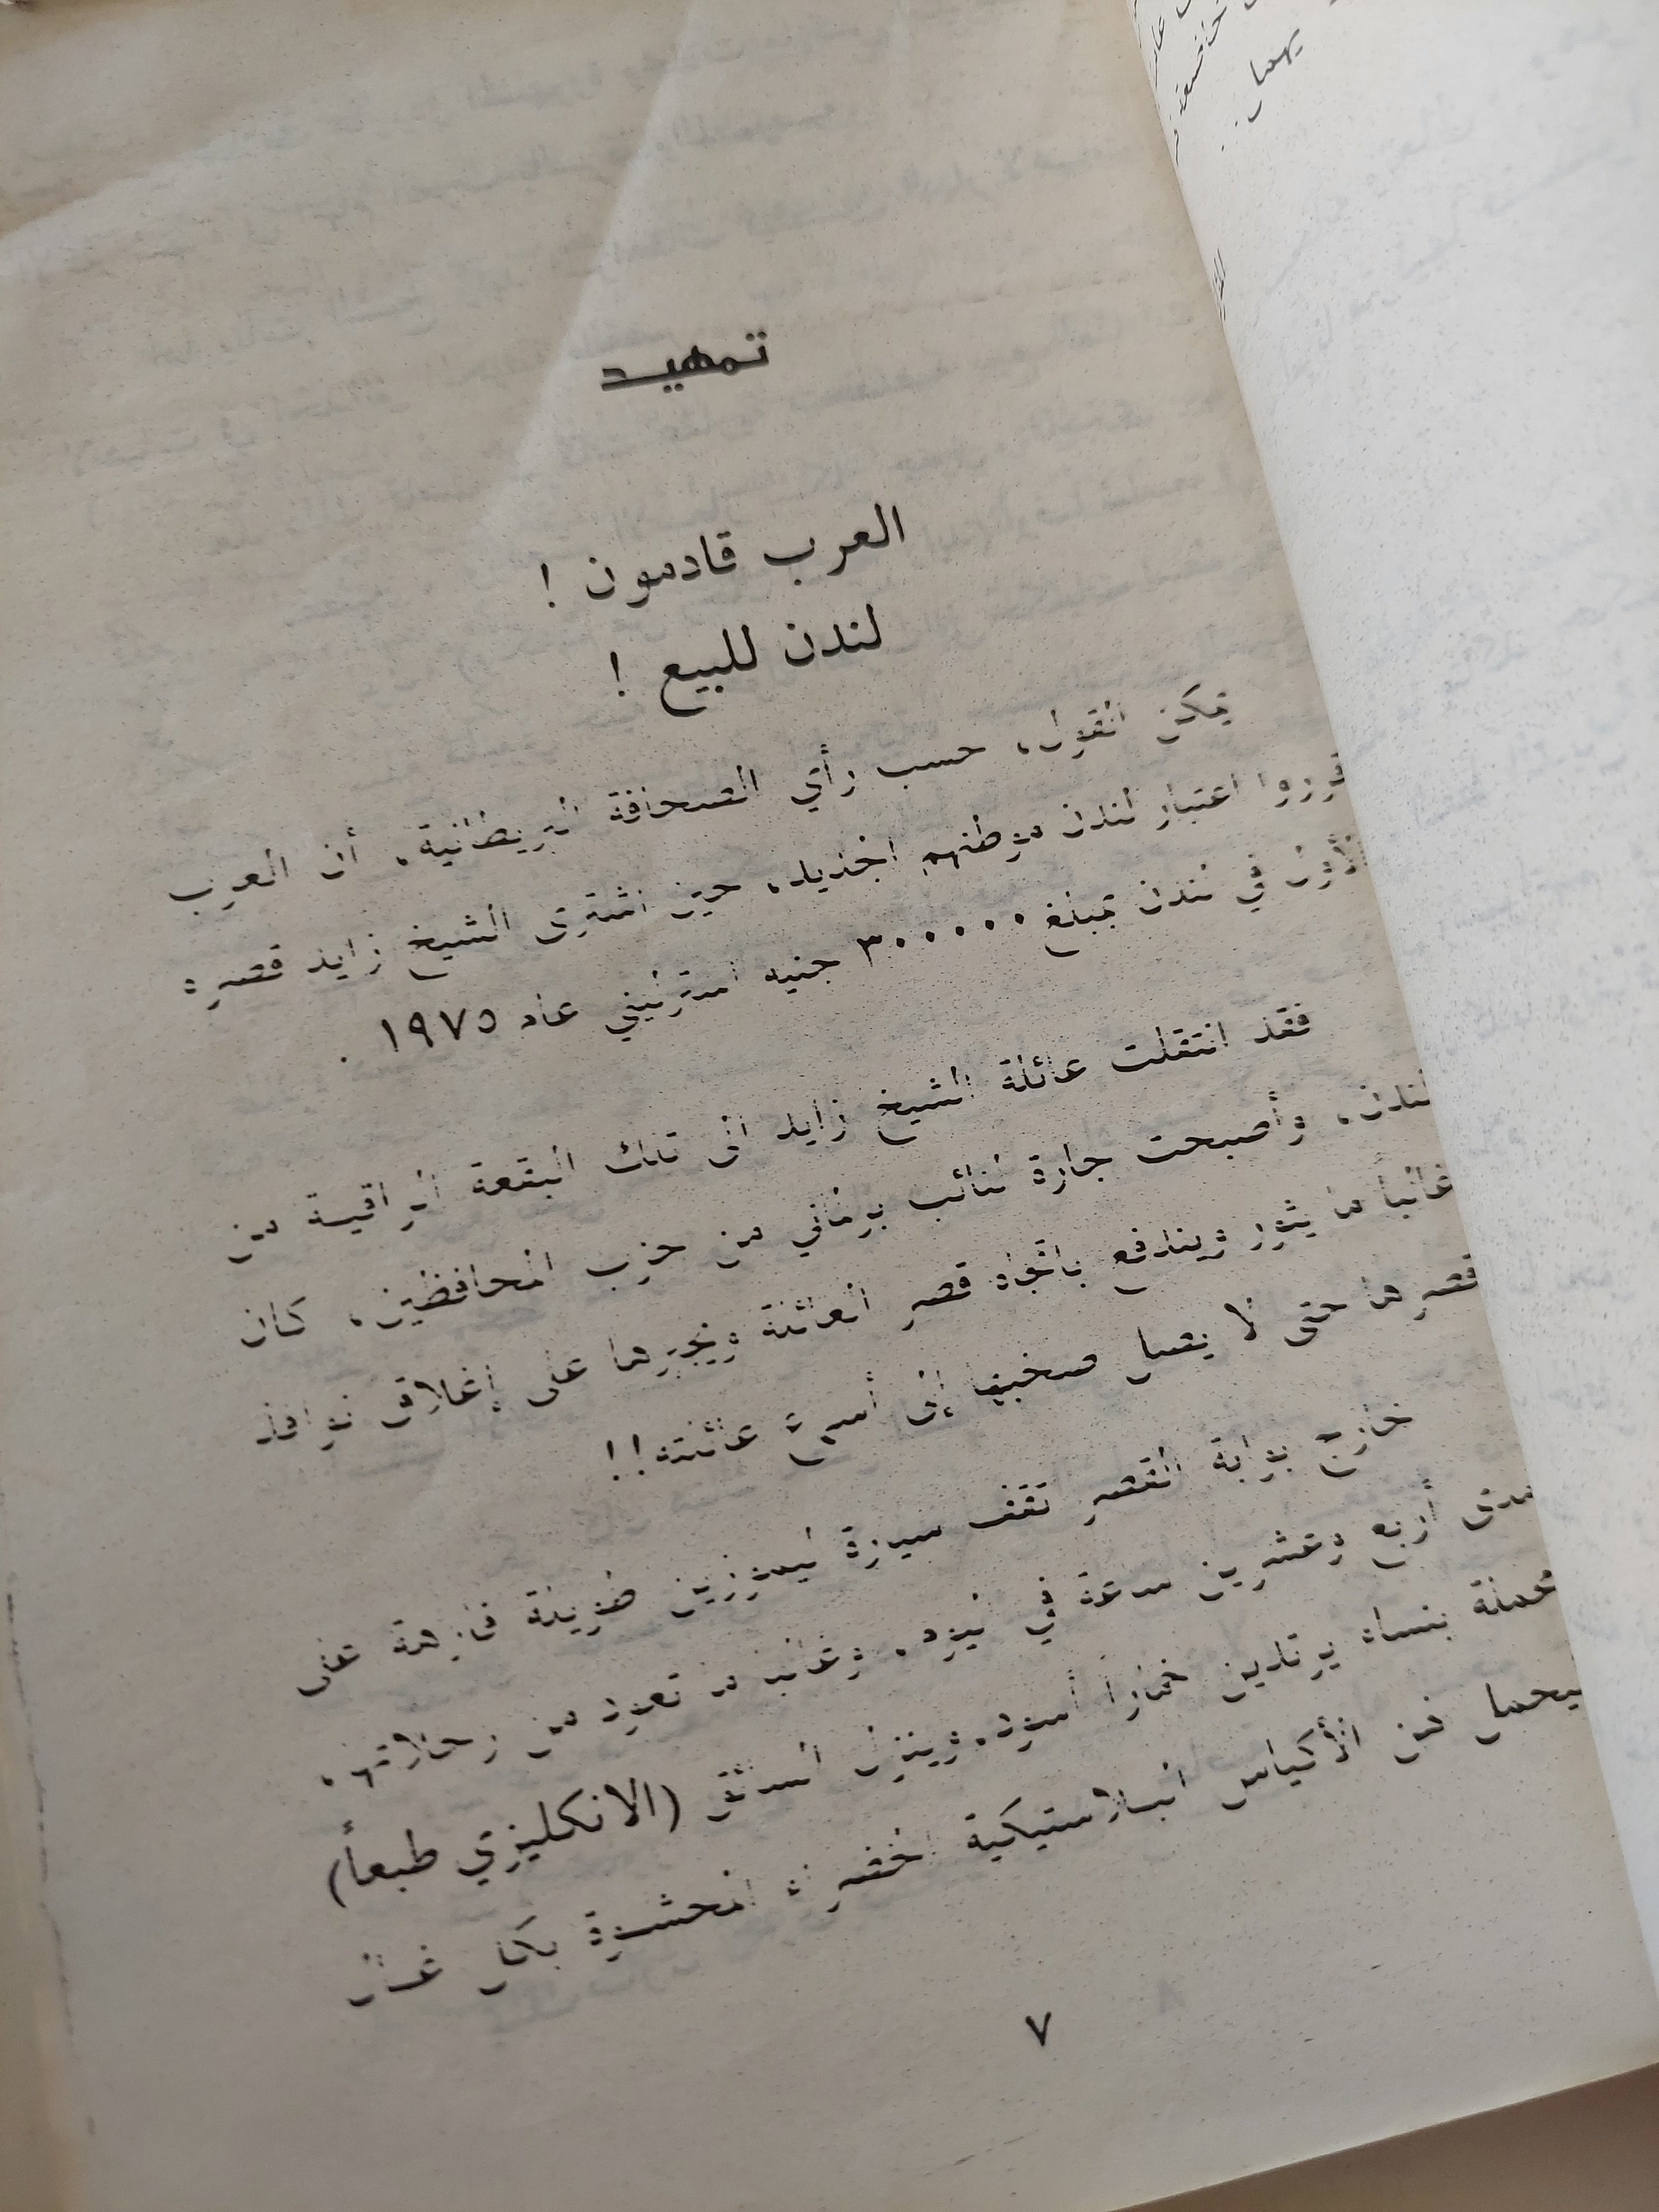 تمهيد
العرب قادمون !
لندن للبيع !
يمكن القول، حسب رأي الصحافة البريطانية، أن العرب
قرروا اعتبار لندن موطنهم الجديد، حين اشترى الشيخ زايد قصره
الأول في لندن بمبلغ ٣٠٠٠٠٠ جنيه استرليني عام ١٩٧٥ .
فقد انتقلت عائلة الشيخ زايد الى تلك البقعة الراقية من
لندن، وأصبحت جارة لنائب برلماني من حزب المحافظين، كان
غالباً ما يثور ويندفع باتجاه قصر العائلة ويجبرها على إغلاق نوافذ
قصرها حتى لا يصل صخبها إلى أسرع عائلته!!
خارج بوابة القصر تقف سيارة ليموزين طويلة فارهة على
مدى أربع وعشرين ساعة في اليوم، وغالبا ما تعود من رحلاتها،
محملة بنساء يرتدين خماراً أسود، وينزل السائق (الانكليزي طبعاً)
ليحمل لهن الأكياس البلاستيكية الخضراء المحشوة بكل غال
٧